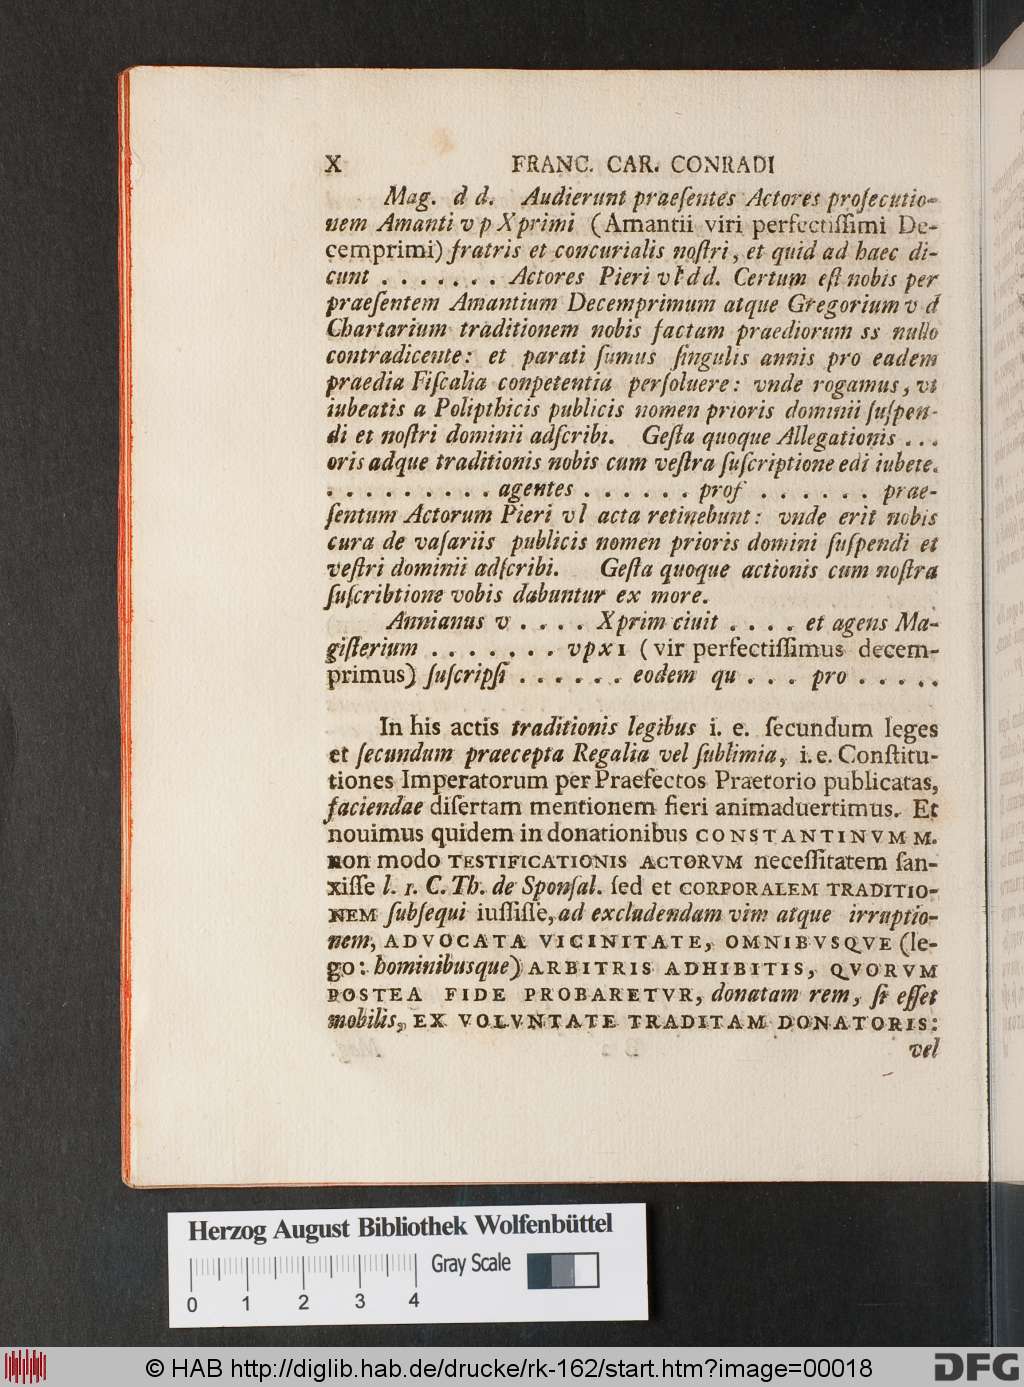 X FRANC. CAR. CONRADI
Mag. d d. Audierunt praeſentes Actores proſecutio-
nem Amanti v p X primi (Amantii viri perfectiſſimi De-
cemprimi) fratris et concurialis noſtri, et quid ad haec di-
cunt . . . . . . . Actores Pieri vl dd. Certum eſt nobis per
praeſentem Amantium Decemprimum atque Gregorium v d
Chartarium traditionem nobis factam praediorum ss nullo
contradicente: et parati ſumus ſingulis annis pro eadem
praedia Fiſcalia conpetentia perſoluere: vnde rogamus, vt
iubeatis a Polipthicis publicis nomen prioris dominii ſuſpen-
di et noſtri dominii adſcribi. Geſta quoque Allegationis . . .
oris adque traditionis nobis cum veſtra ſuſcriptione edi iubete.
. . . . . . . . . agentes . . . . . . prof . . . . . . prae-
ſentum Actorum Pieri vl acta retinebunt: vnde erit nobis
cura de vaſariis publicis nomen prioris domini ſuſpendi et
veſtri dominii adſcribi. Geſta quoque actionis cum noſtra
ſuſcribtione vobis dabuntur ex more.
Annianus v . . . . Xprim ciuit . . . . et agens Ma-
giſterium . . . . . . . v p x ı (vir perfectiſſimus decem-
primus) ſuſcripſi . . . . . . eodem qu . . . pro . . . . .
In his actis traditionis legibus i. e. ſecundum leges
et ſecundum praecepta Regalia vel ſublimia, i. e. Conſtitu-
tiones Imperatorum per Praefectos Praetorio publicatas,
faciendae diſertam mentionem fieri animaduertimus. Et
nouimus quidem in donationibus CONSTANTINVM M.
non modo TESTIFICATIONIS ACTORVM neceſſitatem ſan-
xiſſe l. 1. C. Th. de Sponſal. ſed et CORPORALEM TRADITIO-
NEM ſubſequi iuſſiſſe, ad excludendam vim atque irruptio-
nem, ADVOCATA VICINITATE, OMNIBVSQVE (le-
go: hominibusque) ARBITRIS ADHIBITIS, QVORVM
POSTEA FIDE PROBARETVR, donatam rem, ſi eſſet
mobilis, EX VOLVNTATE TRADITAM DONATORIS:
vel
Herzog August Bibliothek Wolfenbüttel
Gray Scale
0 1 2 3 4
© HAB http://diglib.hab.de/drucke/rk-162/start.htm?image=00018
DFG